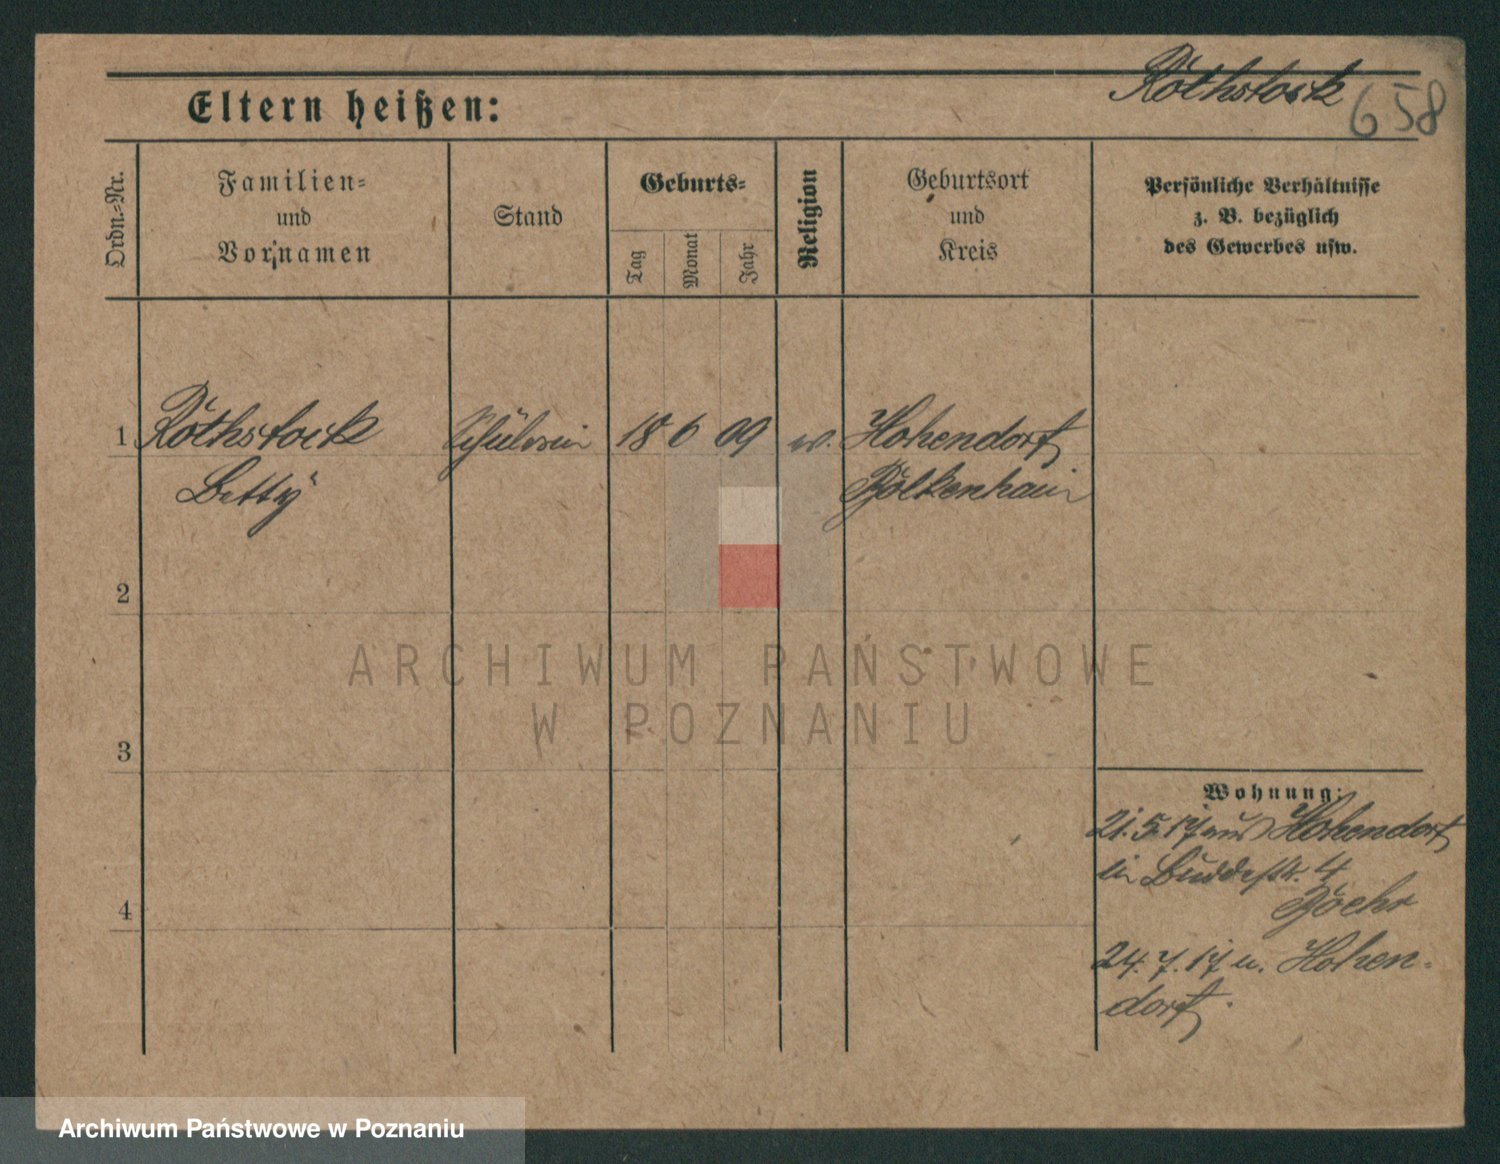 Röthstock
658
Eltern heißen:
Ordn.-Nr.
Familien-
und
Vornamen
Stand
Geburts-
Tag
Monat
Jahr
Religion
Geburtsort
und
Kreis
Persönliche Verhältnisse
z. B. bezüglich
des Gewerbes usw.
1 Röthstock Schülerin 18 6 09 ev. Hohendorf
Betty Bolkenhain
2
3
4
ARCHIWUM PAŃSTWOWE
W POZNANIU
Wohnung:
21.5.17 aus Hohendorf
in Buddestr. 4
24.7.17 n. Hohen-
dorf.
Archiwum Państwowe w Poznaniu